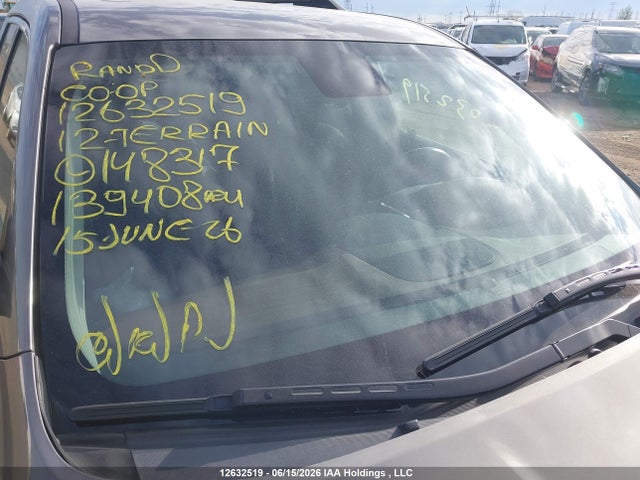 RAND D
CO-OP
12632519
12-TERRAIN
0148317
139408
15 JUNE 26
12632519 - 06/15/2026 IAA Holdings , LLC